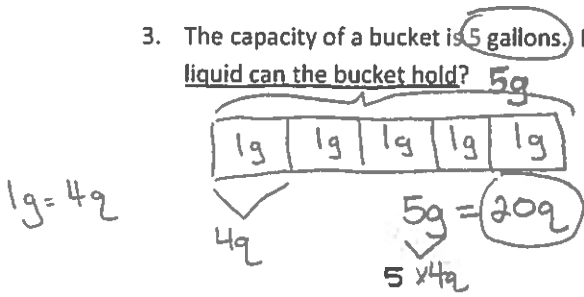 3. The capacity of a bucket is 5 gallons.
liquid can the bucket hold? 5g
1g 1g 1g 1g 1g
1g = 4q
4q
5g = 20q
5 x4q